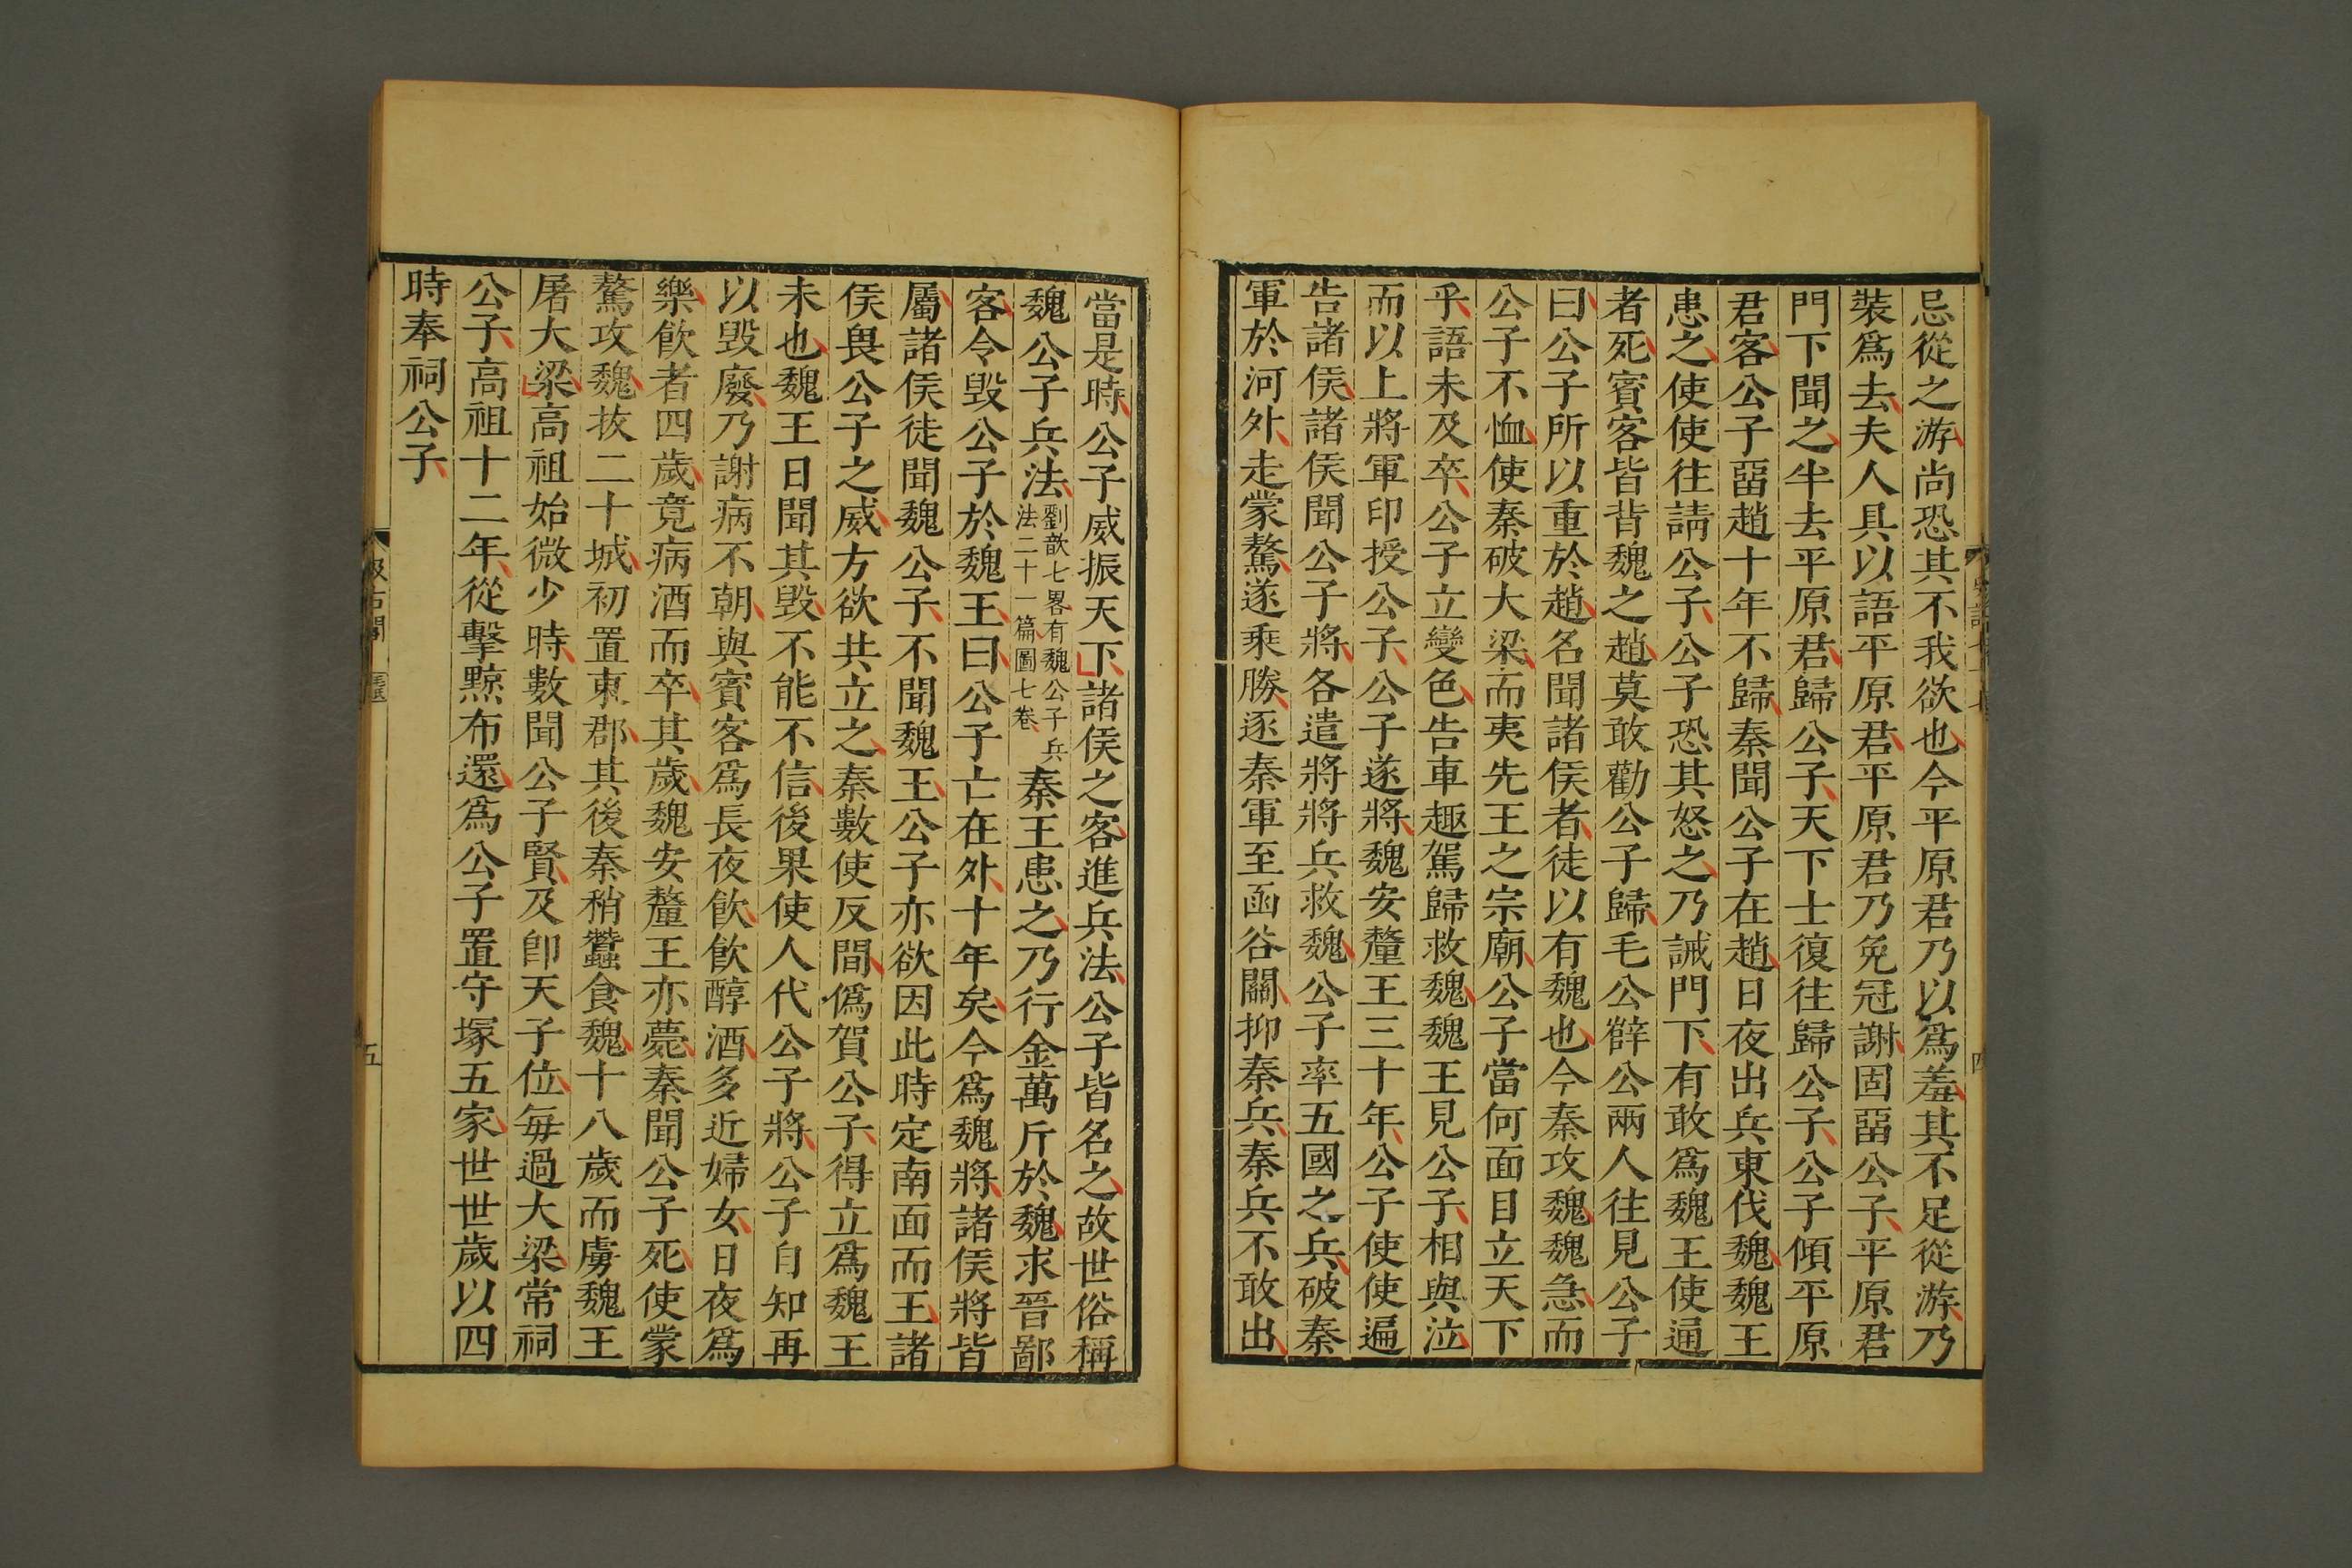 忌從之游尚恐其不我欲也今平原君乃以爲羞其不足從游乃
裝爲去夫人具以語平原君平原君乃免冠謝固畱公子平原君
門下聞之半去平原君歸公子天下士復往歸公子公子傾平原
君客公子畱趙十年不歸秦聞公子在趙日夜出兵東伐魏魏王
患之使使往請公子公子恐其怒之乃誡門下有敢爲魏王使通
者死賓客皆背魏之趙莫敢勸公子歸毛公薛公兩人往見公子
曰公子所以重於趙名聞諸侯者徒以有魏也今秦攻魏魏急而
公子不恤使秦破大梁而夷先王之宗廟公子當何面目立天下
乎語未及卒公子立變色告車趣駕歸救魏魏王見公子相與泣
而以上將軍印授公子公子遂將魏安釐王三十年公子使使遍
告諸侯諸侯聞公子將各遣將將兵救魏公子率五國之兵破秦
軍於河外走蒙驁遂乘勝逐秦軍至函谷關抑秦兵秦兵不敢出
四
當是時公子威振天下諸侯之客進兵法公子皆名之故世俗稱
魏公子兵法劉歆七畧有魏公子兵法二十一篇圖七卷秦王患之乃行金萬斤於魏求晉鄙
客令毀公子於魏王曰公子亡在外十年矣今爲魏將諸侯將皆
屬諸侯徒聞魏公子不聞魏王公子亦欲因此時定南面而王諸
侯畏公子之威方欲共立之秦數使反間僞賀公子得立爲魏王
未也魏王日聞其毀不能不信後果使人代公子將公子自知再
以毀廢乃謝病不朝與賓客爲長夜飲飲醇酒多近婦女日夜爲
樂飲者四歲竟病酒而卒其歲魏安釐王亦薨秦聞公子死使蒙
驁攻魏拔二十城初置東郡其後秦稍蠶食魏十八歲而虜魏王
屠大梁高祖始微少時數聞公子賢及卽天子位每過大梁常祠
公子高祖十二年從擊黥布還爲公子置守塚五家世世歲以四
時奉祠公子
五